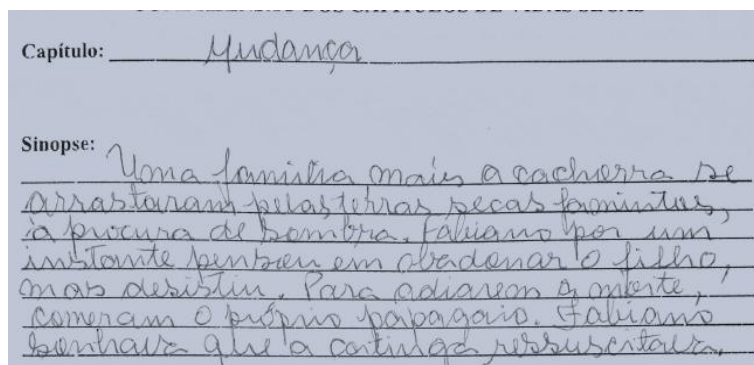 Capítulo: Mudança
Sinopse:
Uma família mais a cachorra se
arrastaram pelas terras secas famintas,
à procura de sombra. Fabiano por um
instante pensou em abadonar o filho,
mas desistiu. Para adiarem a morte,
comeram o próprio papagaio. Fabiano
sonhava que a catinga ressuscitara.